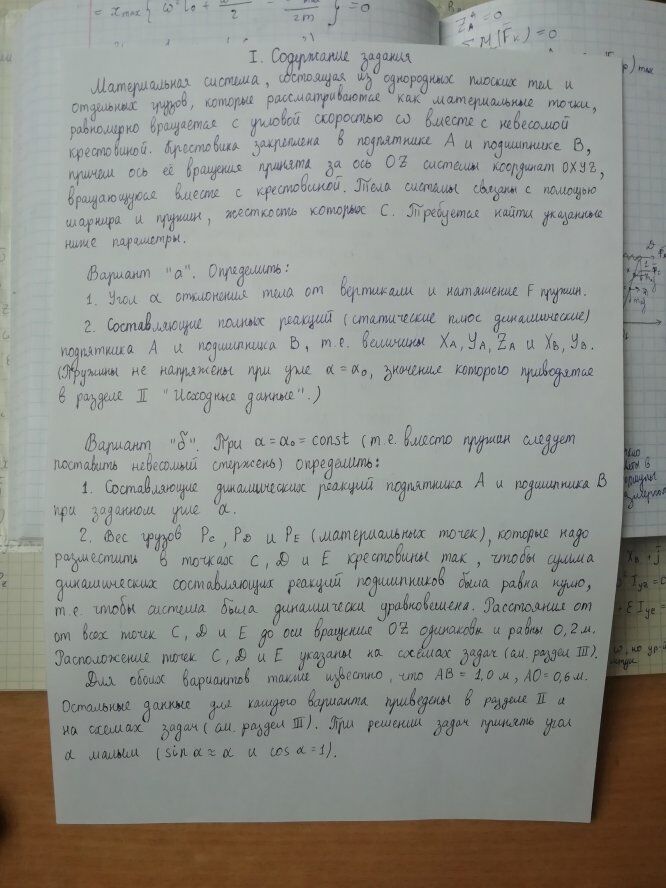 = x max { ω² l₀ + ω/2 - 2m } = 0
Z A = 0
Σ M(F̄ₖ) = 0
I. Содержание задания
Материальная система, состоящая из однородных плоских тел и
отдельных грузов, которые рассматриваются как материальные точки,
равномерно вращается с угловой скоростью ω вместе с невесомой
крестовиной. Крестовина закреплена в подпятнике А и подшипнике В,
причем ось её вращения принята за ось OZ системы координат OXYZ,
вращающуюся вместе с крестовиной. Тела системы связаны с помощью
шарнира и пружин, жесткость которых С. Требуется найти указанные
ниже параметры.
Вариант "а". Определить:
1. Угол α отклонения тела от вертикали и натяжение F пружин.
2. Составляющие полных реакций (статические плюс динамические)
подпятника А и подшипника В, т.е. величины XA, YA, ZA и XB, YB.
(Пружины не напряжены при угле α = α₀, значение которого приводятся
в разделе II "Исходные данные".)
Вариант "б". При α = α₀ = const (т.е. вместо пружин следует
поставить невесомый стержень) определить:
1. Составляющие динамических реакций подпятника А и подшипника В
при заданном угле α.
2. Вес грузов PC, PD и PE (материальных точек), которые надо
разместить в точках С, D и Е крестовины так, чтобы сумма
динамических составляющих реакций подшипников была равна нулю,
т.е. чтобы система была динамически уравновешена. Расстояние от
от всех точек С, D и Е до оси вращение OZ одинаковы и равны 0,2 м.
Расположение точек С, D и Е указаны на схемах задач (см. раздел III).
Для обоих вариантов также известно, что АВ = 1,0 м, АО = 0,6 м.
Остальные данные для каждого варианта приведены в разделе II и
на схемах задач (см. раздел III). При решении задач принять угол
α малым (sin α ≈ α и cos α = 1).